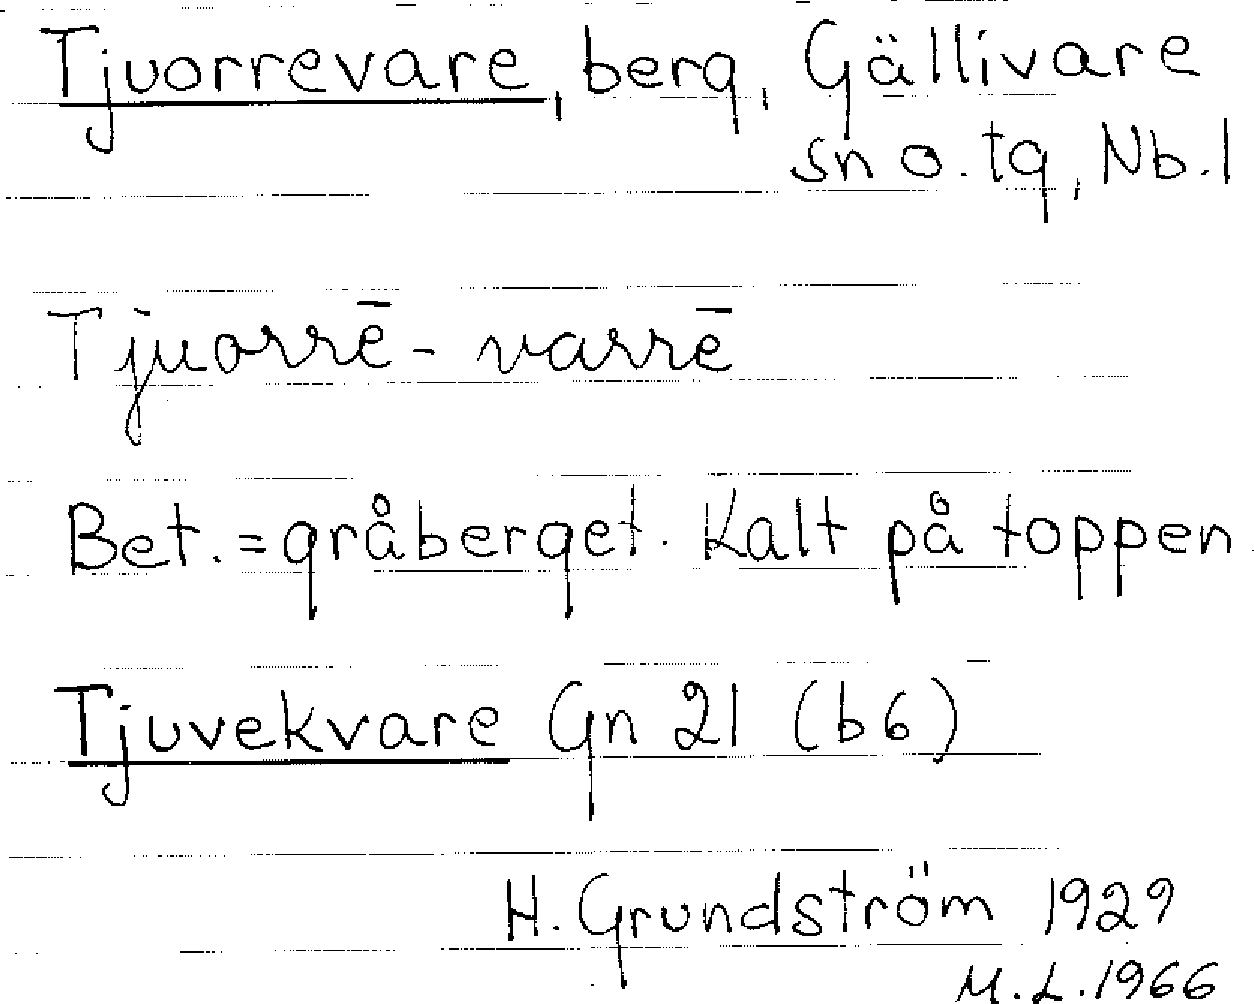 Tjuorrevare, berg, Gällivare
sn o. tg, Nb. l
Tjuorrē-varrē
Bet. = gråberget. Kalt på toppen
Tjuvekvare Gn 21 (b6)
H. Grundström 1929
M.L. 1966